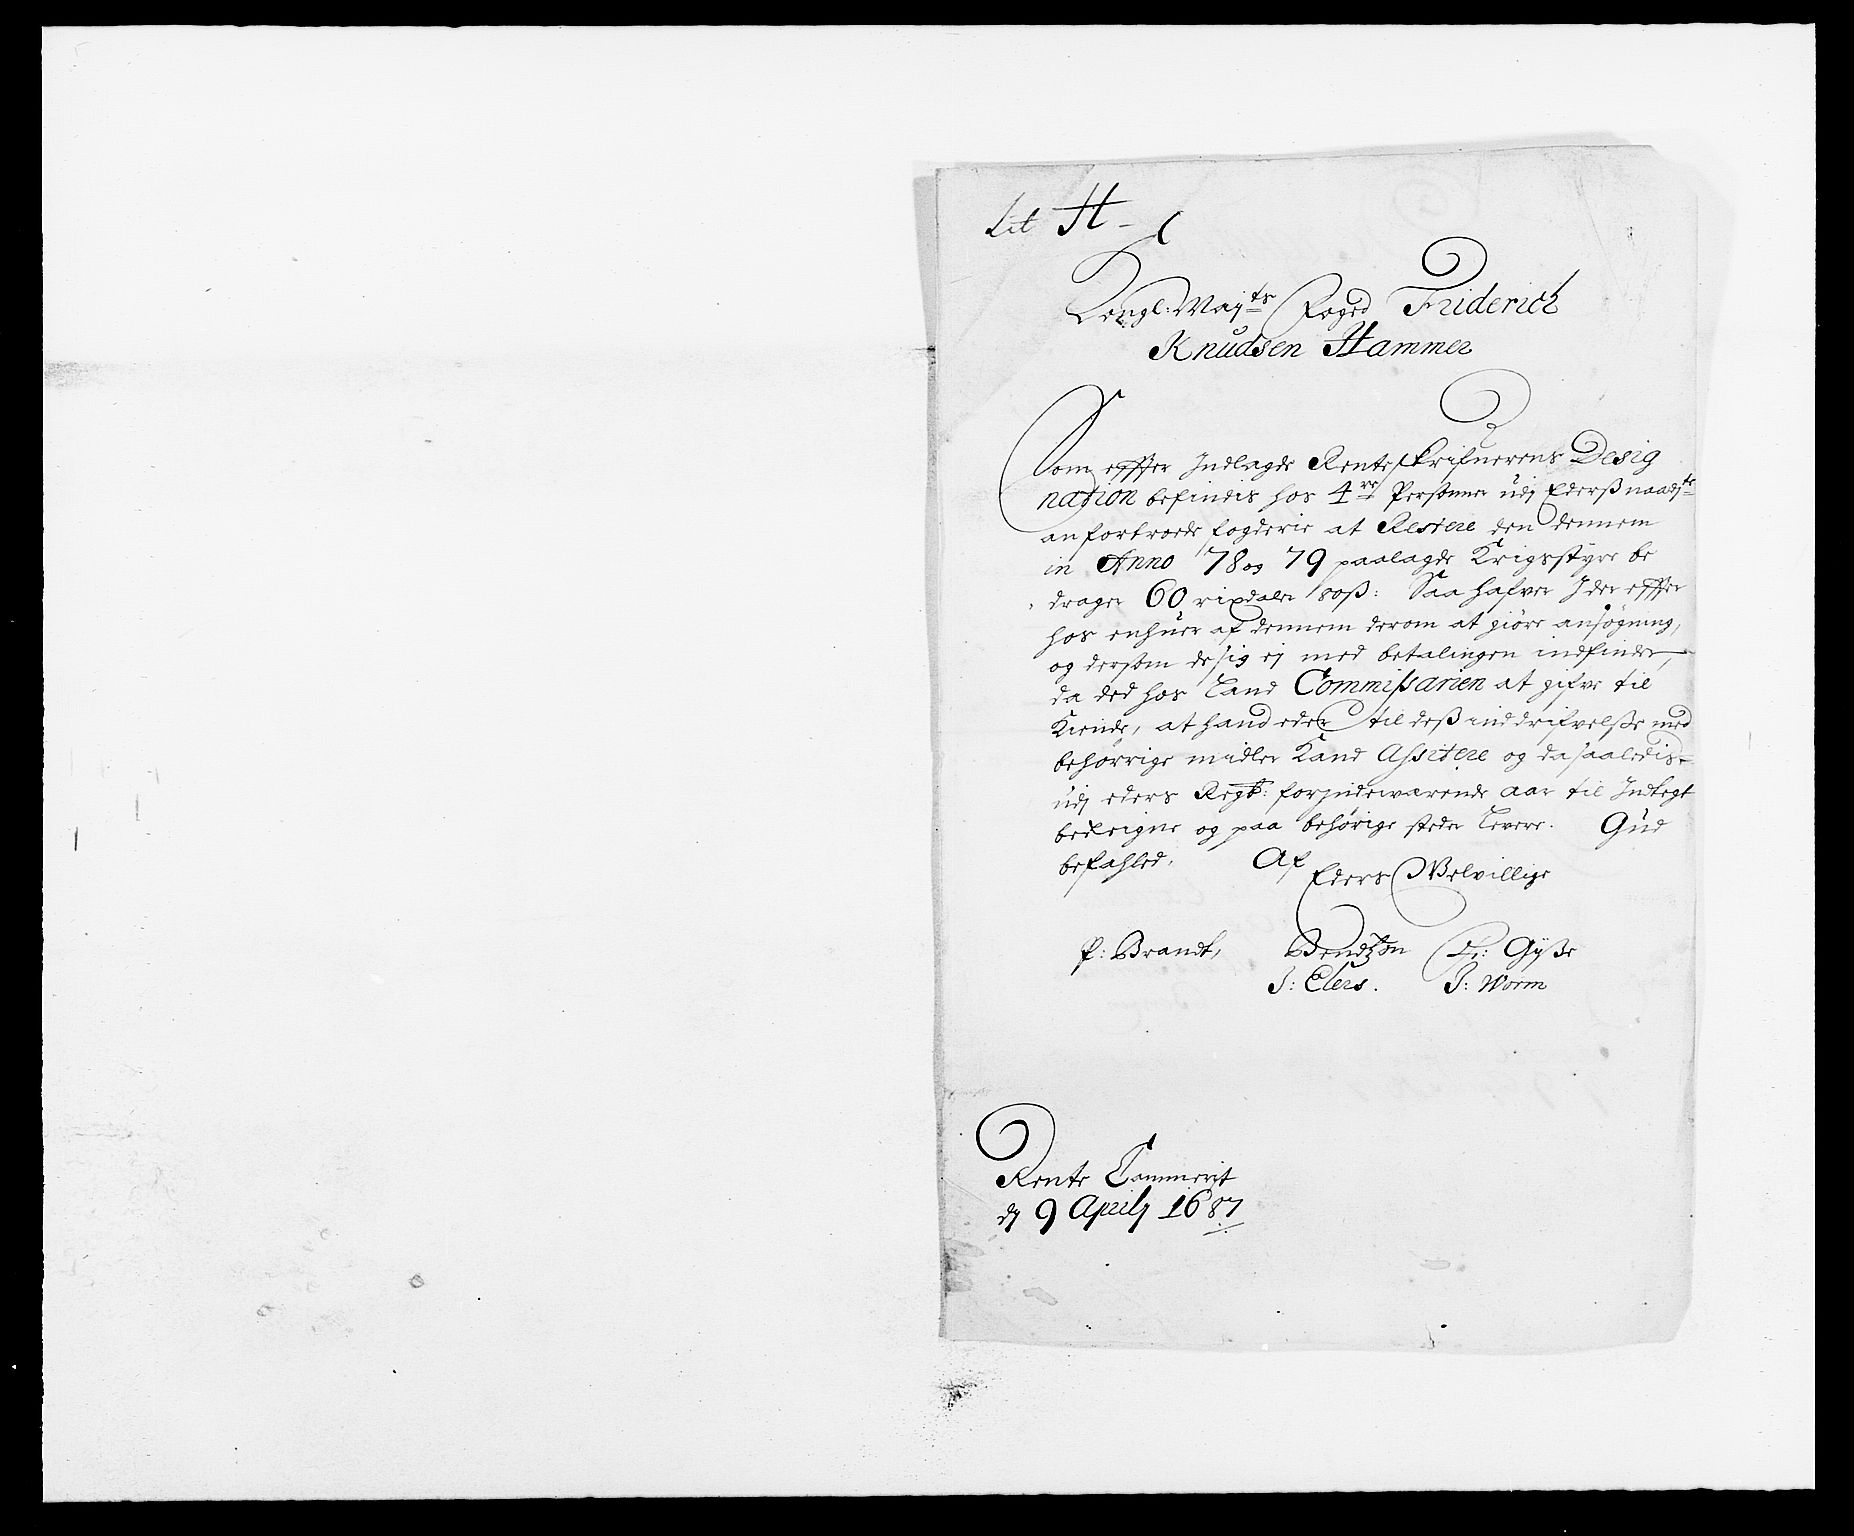 Lit H -
Kongl: Maij:ts Foged Friderich
Knudsen Hammer
Som effter Indlagde Renteskrifuerens Desig
nation befindis hos 4re Personner udj Ederß naadste
anfortroede fogderie at Restere den dennem
in Anno 78 og 79 paalagde Krigsstyre be
drager 60 rixdaler  Saa hafver I der effter
hos enhuer af dennem derom at giöre ansögning,
og dersom de sig ej med betalingen indfinder,
da ded hos Land Commissarien at gifve til
Kiende, at hand eder til deß inddrifvelße med
behörrige midler Kand Assitere og da saaledis
udj eders Regsk: for indewærende aar til Indtegt
bereigne og paa behörige steder levere. Gud
befahled. Af
Eders Velvillige
P: Brandt, Bendtzon Gyße
J: Elers. J: Worm
Rente Cammerit
dj 9 Aprilj 1687